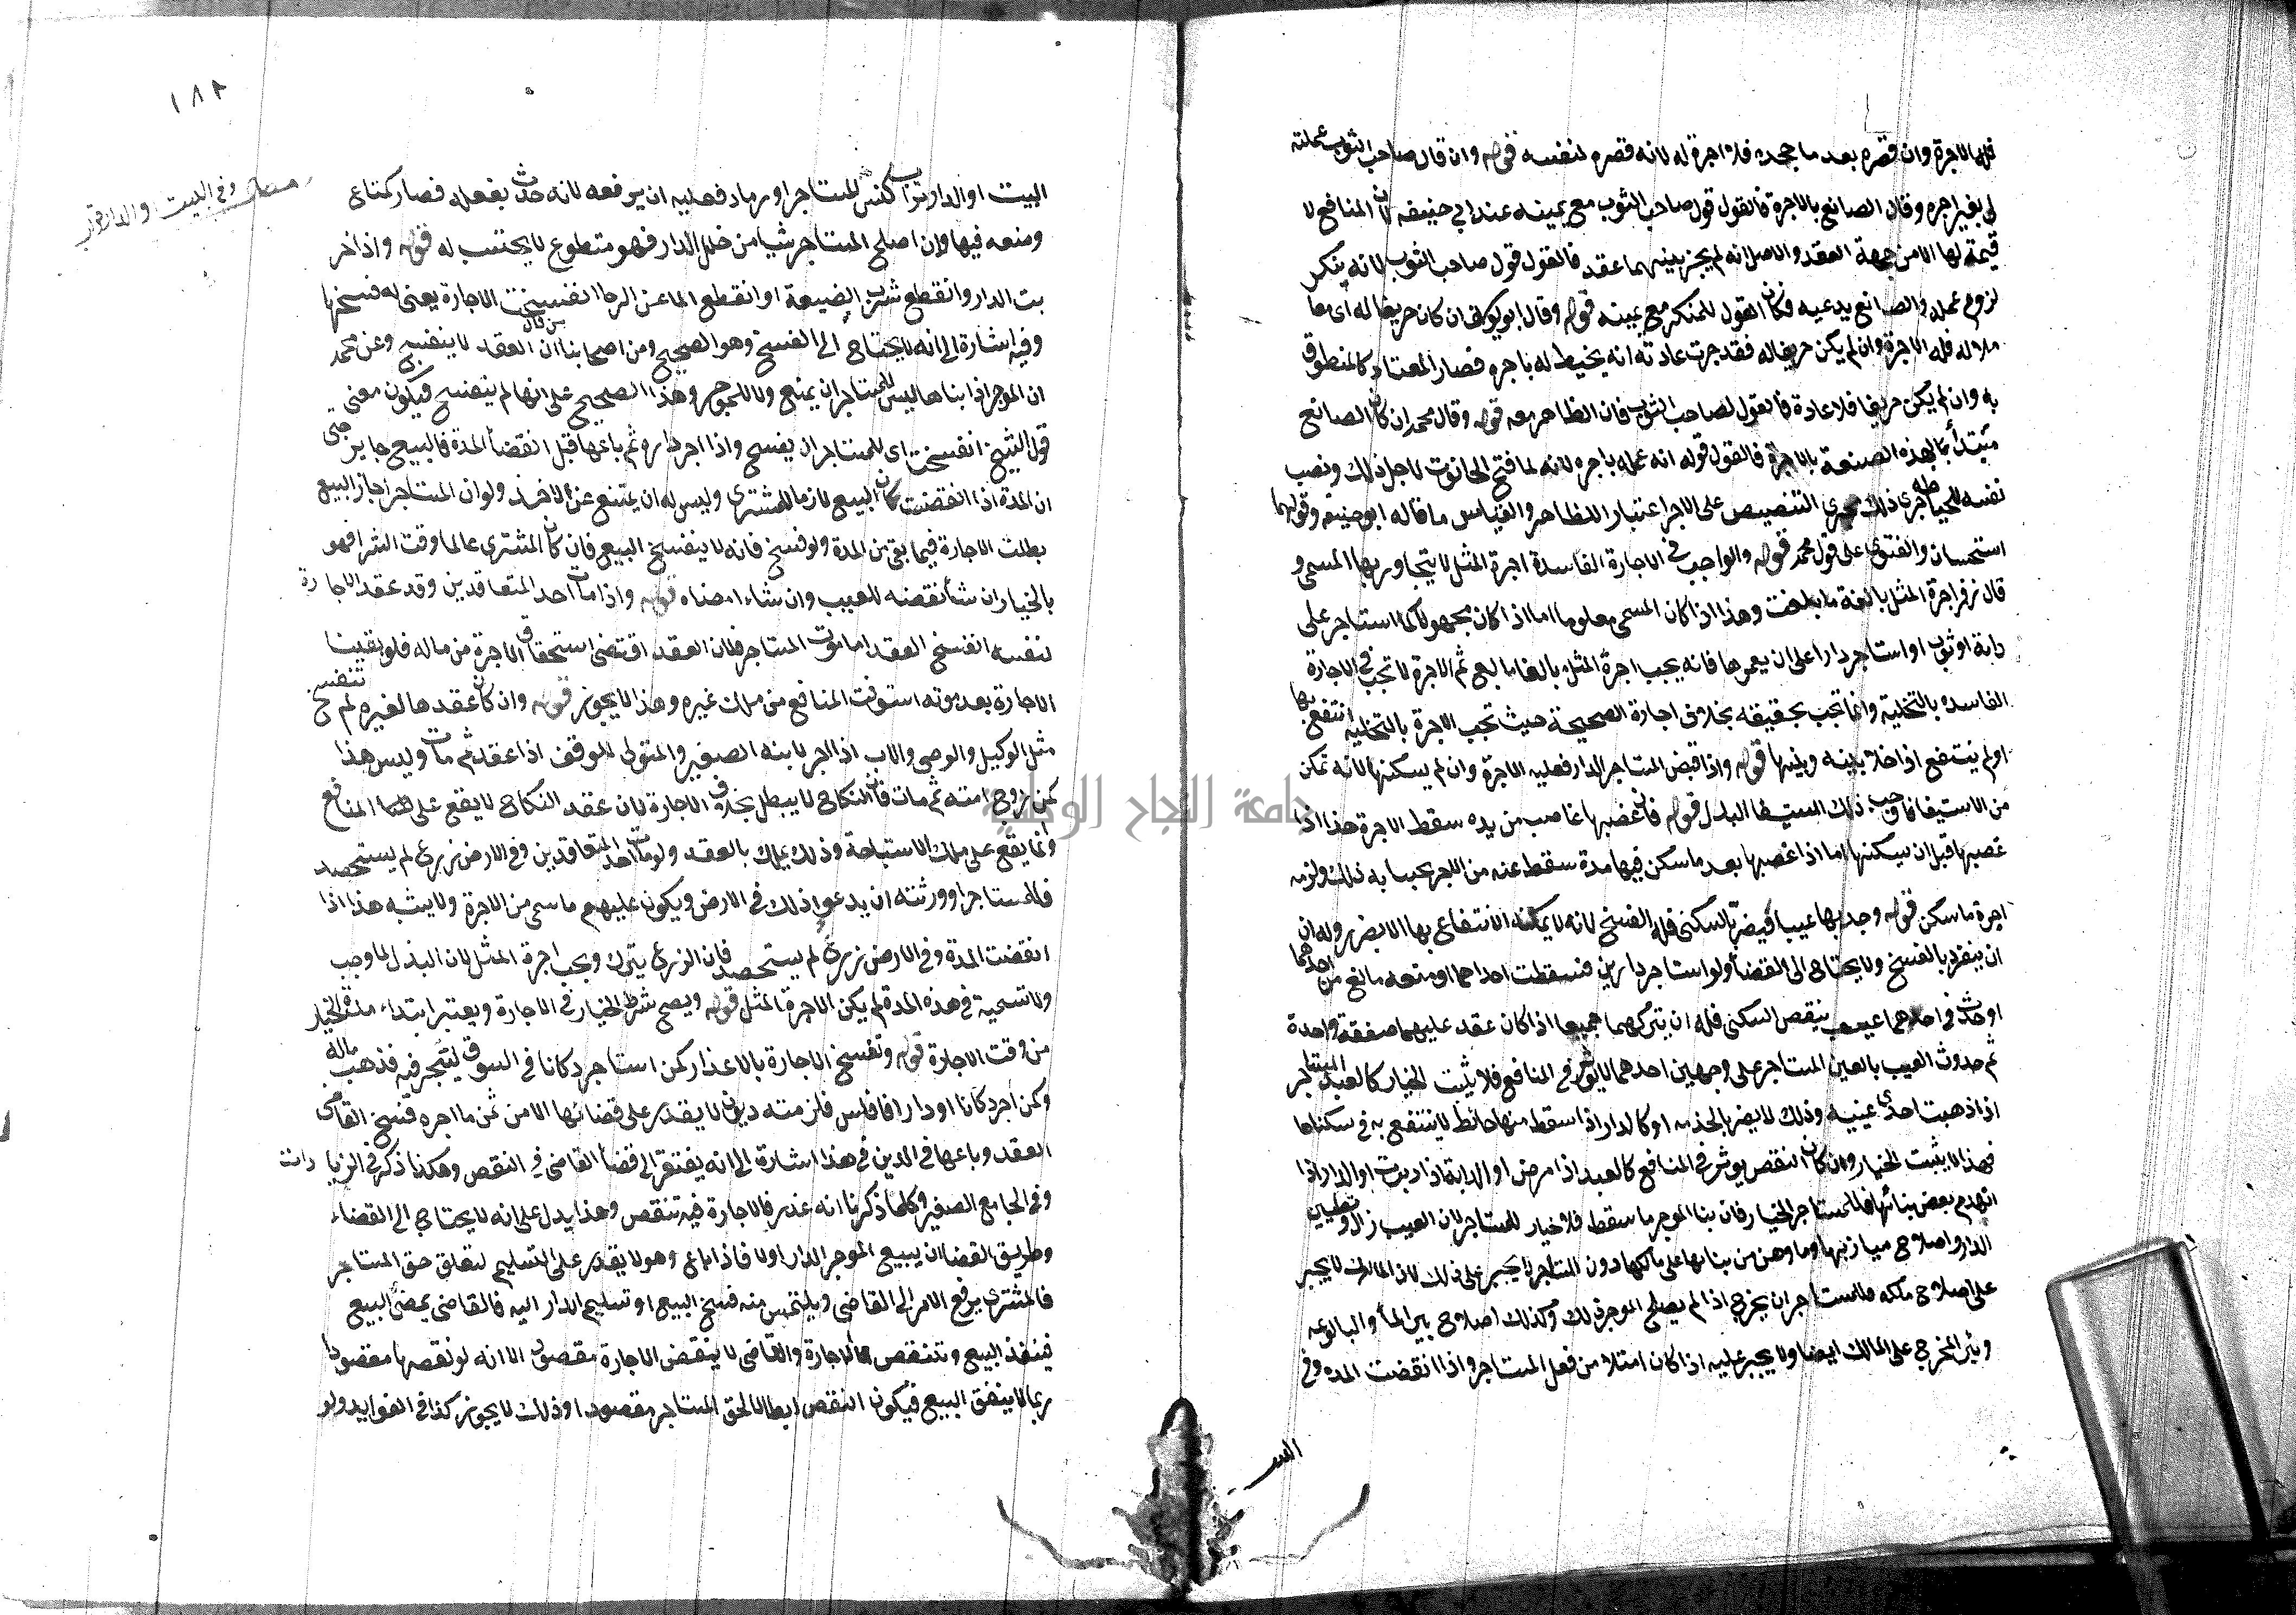 فله الاجرة وان قصره بعد ما جحده فلا اجرة له لانه قصره لنفسه قوله وان قال صاحب الثوب عملته
لي بغير اجره وقال الصانع بالاجرة فالقول قول صاحب الثوب مع يمينه عند ابي حنيفه لان المنافع لا
قيمة لها الا من جهة العقد والاصل انه لم يجز بينهما عقد فالقول قول صاحب الثوب لانه ينكر
لزوم عمله والصانع يدعيه فكان القول للمنكر مع يمينه قوله وقال ابو يوسف ان كان حريفا له اي معا
ملا له فله الاجرة وان لم يكن حريفا له فقد جرت عادته انه يخيط له باجره فصار المعتاد كالمنطوق
به وان لم يكن حريفا فلا عادة فالقول لصاحب الثوب فان الظاهر معه قوله وقال محمد ان كان الصانع
مبتدأ بالهذه الصنعة بالاجرة فالقول قوله انه عمله باجره لانه لما فتح الحانوت لاجل ذلك ونصب
نفسه للخياطه جرى ذلك مجرى التنصيص على الاجر اعتبار الظاهر والقياس ما قاله ابو حنيفه وقولهما
استحسان والفتوى على قول محمد قوله والواجب في الاجارة الفاسدة اجرة المثل لا يتجاوز بها المسمى و
قال زفر اجرة المثل بالغة ما بلغت وهذا اذا كان المسمى معلوما اما اذا كان مجهولا كما استاجر على
دابة او ثوب او استاجر دارا على ان يعمرها فانه يجب اجرة المثل بالغا ما بلغ ثم الاجرة لا تجب في الاجارة
الفاسده بالتخلية وانما تجب بحقيقه بخلاف اجارة الصحيحة حيث تجب الاجرة بالتخلية انتفع بها
او لم ينتفع اذا خلا بينه وبينها قوله واذا قبض المستاجر الدار فعليه الاجرة وان لم يسكنها لانه تمكن
من الاستيفا فاوجب ذلك استيفا البدل قوله فان غصبها غاصب من يده سقط الاجرة هذا اذا
غصبها قبل ان يسكنها اما اذا غصبها بعد ما سكن فيها مدة سقط عنه من الاجر بحسابه ذلك ولزمه
اجرة ما سكن قوله وجد بها عيبا فيضر بالسكنى فله الفسخ لانه لا يمكنه الانتفاع بها الا بضرر وله ان
ان ينفرد بالفسخ ولا يحتاج الى القضا ولو استاجر دارين فسقطت احداهما او منعه مانع من احدهما
او حدث في احدهما عيب ينقص السكنى فله ان يتركهما جميعا اذا كان عقد عليهما صفقة واحدة
ثم حدوث العيب بالعين المستاجر على وجهين احدهما لا يؤثر في المنافع فلا يثبت الخيار كالعبد المستاجر
اذا ذهبت احدى عينيه وذلك لا يضر بالخدمه او كالدار اذا سقط منها حائط لا ينتفع به في سكناها
فهذا لا يثبت الخيار وان كان النقص يوثر في المنافع كالعبد اذا مرض او الدابة اذا دبرت او الدار اذا
انهدم بعض بنائها فللمستاجر الخيار فان بنا الموجر ما سقط فلا خيار للمستاجر لان العيب زال وتطيين
الدار واصلاح ميازبها وما وهن من بنائها على مالكها دون المستاجر لا يجبر على ذلك لان المالك لا يجبر
على اصلاح ملكه وللمستاجر ان يخرج اذا لم يصلح الموجر ذلك وكذلك اصلاح بير الما والبالوعه
وبئر المخرج على المالك ايضا ولا يجبر عليه اذا كان امتلا من فعل المستاجر واذا انقضت المده وفي
البيت
١٨٢
البيت او الدار تراب كنس للمستاجر او رماد فعليه ان يرفعه لانه حدث بفعله فصار كمتاع
وفي البيت او الدار تراب
وضعه فيها وان اصلح المستاجر شيا من خلل الدار فهو متطوع لا يحتسب له قوله واذا خر
بت الدار وانقطع شرب الضيعة او انقطع الما عن الرحا انفسخت الاجارة يعني له فسخها
وفيه اشارة الى انه لا يحتاج الى الفسخ وهو الصحيح ومن اصحابنا من قال ان العقد لا ينفسخ وعن محمد
ان الموجر اذا بناها ليس للمستاجر ان يمنع ولا للموجر وهذا الصحيح على انها لم ينفسخ فيكون معنى
قول الشيخ انفسخت اي للمستاجر ان يفسخ واذا اجر داره ثم باعها قبل انقضا المدة فالبيع جايز حتى
ان المدة اذا انقضت كان البيع لازما للمشتري وليس له ان يمتنع عن الاخذ ولو ان المستاجر اجاز البيع
بطلت الاجارة فيما بقي من المدة ولو فسخ فانه لا ينفسخ البيع فان كان المشتري عالما وقت الشرا فهو
بالخيار ان شأ نقضه للعيب وان شاء امضاه قوله واذا مات احد المتعاقدين وقد عقد الاجارة
لنفسه انفسخ العقد اما موت المستاجر فلان العقد اقتضى استحقاق الاجرة من ماله فلو بقينا
الاجارة بعد موته استوفت المنافع من ملك غيره وهذا لا يجوز قوله وان كان عقدها لغيره لم تنفسخ
مثل الوكيل والوصي والاب اذا اجر لابنه الصغير والمتولي للموقف اذا عقد ثم مات وليس هذا
كمن زوج امته ثم مات فان النكاح لا يبطل بخلاف الاجارة لان عقد النكاح لا يقع على المنافع
وانما يقع على ملك الاستباحة وذلك يملك بالعقد ولو مات احد المتعاقدين وفي الارض زرع لم يستحصد
فللمستاجر او ورثته ان يدعوا ذلك في الارض ويكون عليهم ما سمى من الاجرة ولا يشبه هذا اذا
انقضت المدة وفي الارض زرع لم يستحصد فان الزرع يترك ويجب اجرة المثل لان البذل لما وجب
ولا تسمية في هذه المدة لم يكن الا اجرة المثل قوله ويصح شرط الخيار في الاجارة ويعتبر ابتداء مدة الخيار
من وقت الاجارة قوله وتفسخ الاجارة بالاعذار كمن استاجر دكانا في السوق ليتجر فيه فذهب ماله
وكمن اجر دكانا او دارا فافلس فلزمته ديون لا يقدر على قضائها الا من ثمن ما اجره فسخ القاضي
العقد وباعها في الدين في هذا اشارة الى انه يفتقر الى قضا القاضي في النقص وهكذا ذكر في الزيادات
وفي الجامع الصغير وكلما ذكرنا انه عذر فالاجارة فيه تنتقص وهذا يدل على انه لا يحتاج الى القضاء
وطريق القضا ان يبيع الموجر الدار اولا فاذا باع وهو لا يقدر على التسليم لتعلق حق المستاجر
فالمشتري يرفع الامر الى القاضي ويلتمس منه فسخ البيع او تسليم الدار اليه فالقاضي يمضي البيع
فينفذ البيع وتنتقص الاجارة والقاضي لا ينقض الاجارة مقصودا لانه لو نقضها مقصودا
ربما لا ينفق البيع فيكون النقص ابطالا لحق المستاجر مقصودا وذلك لا يجوز كذا في الفوايد ولو
جامعة النجاح الوطنية